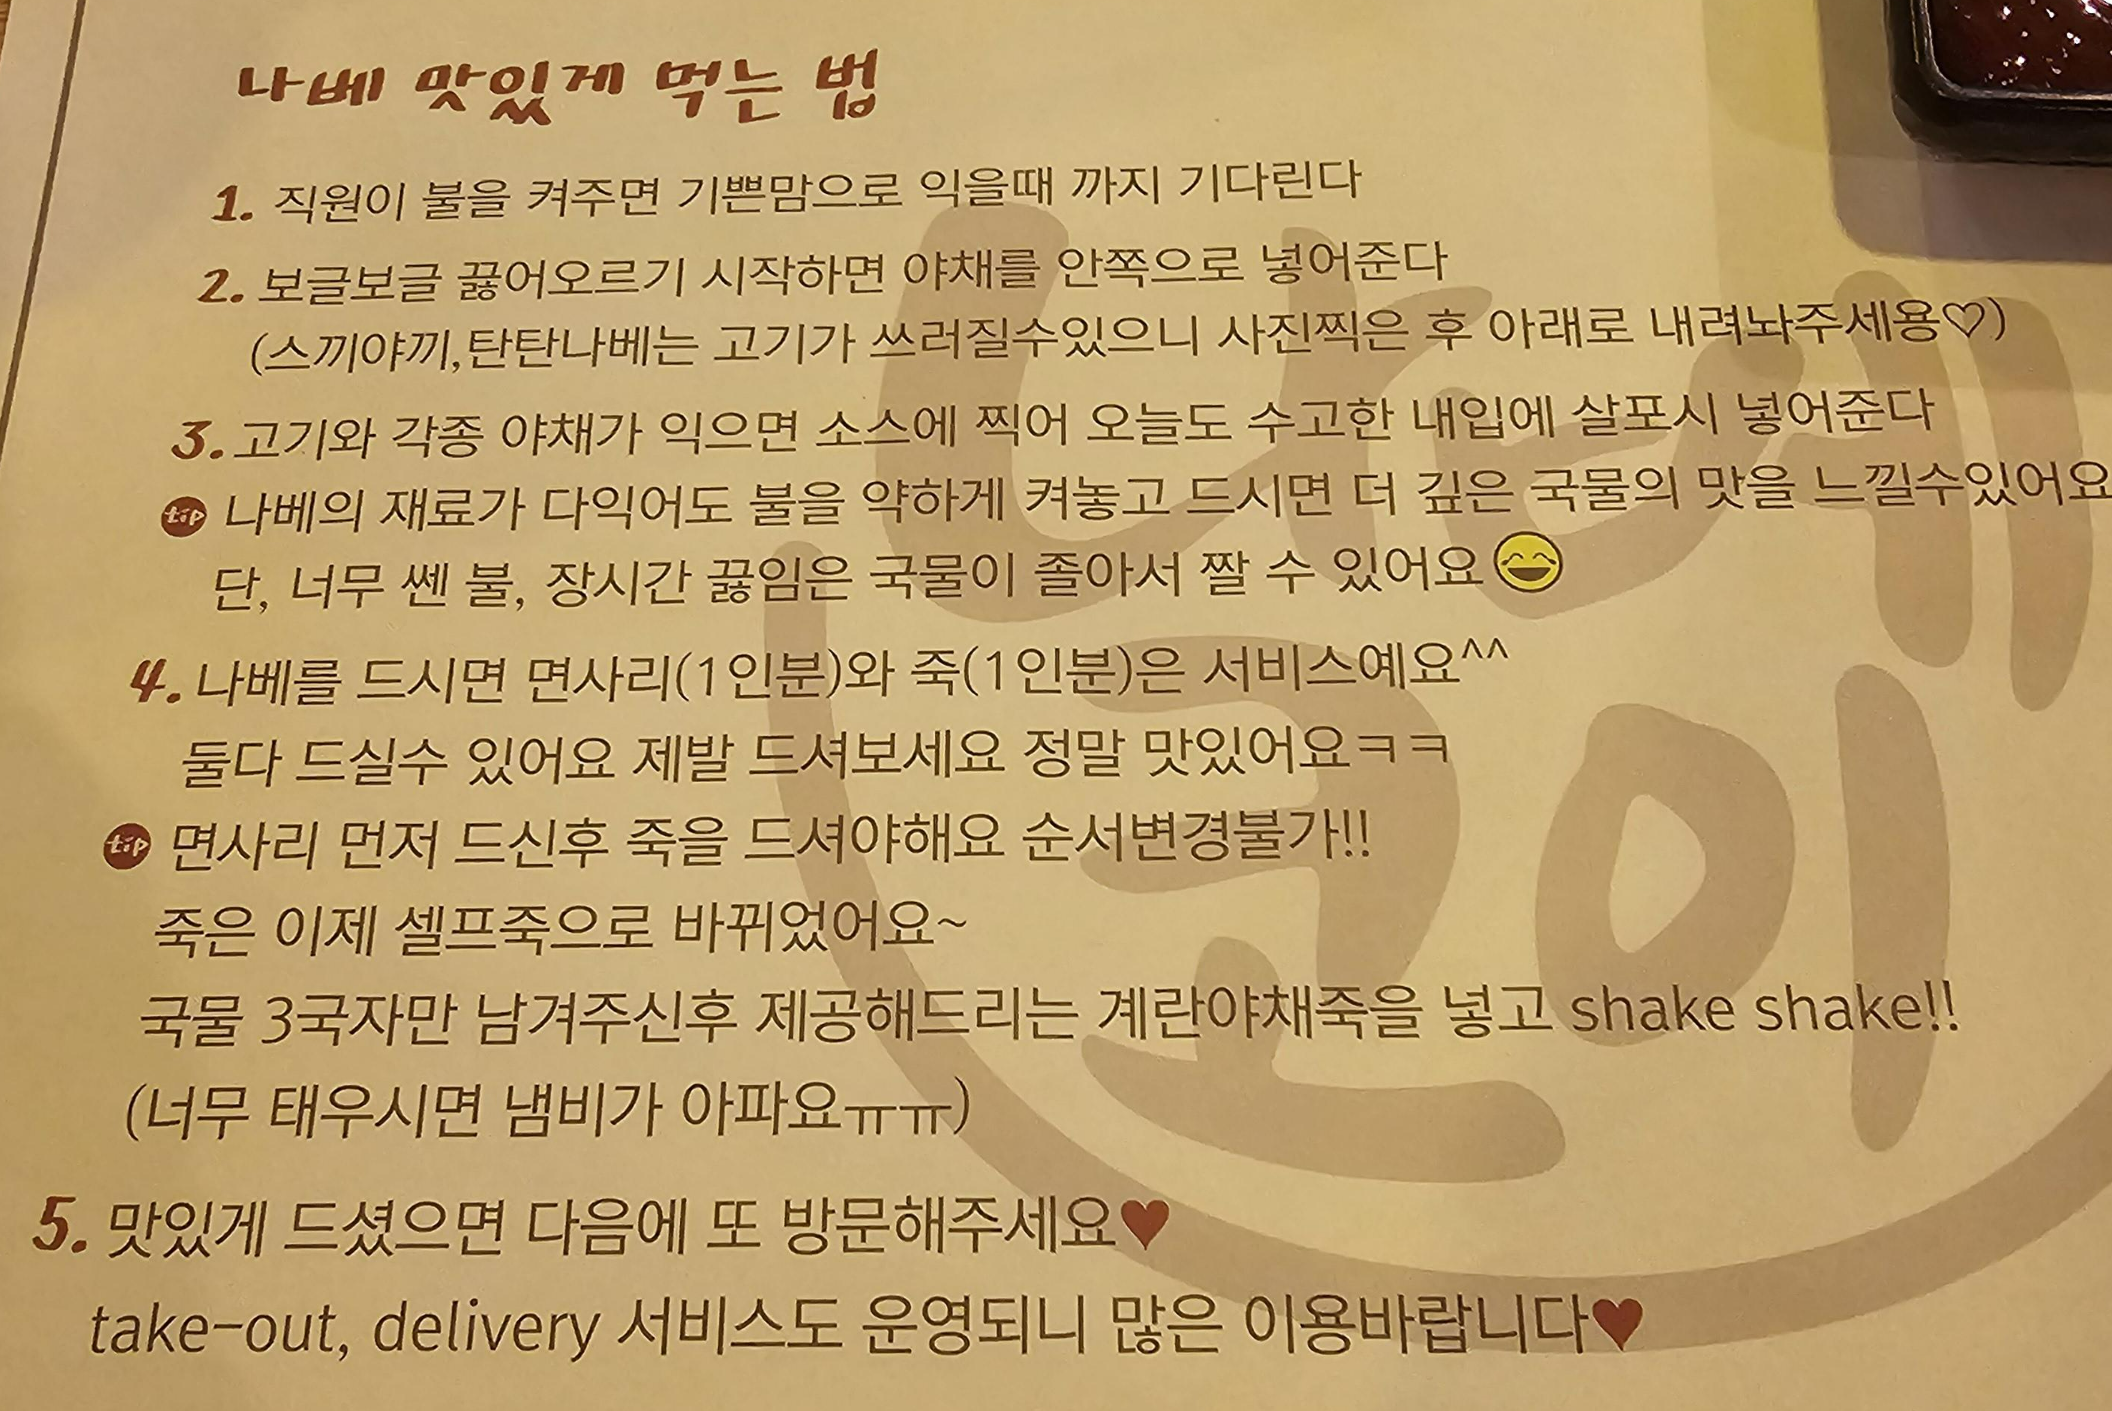 나베 맛있게 먹는 법
1. 직원이 불을 켜주면 기쁜맘으로 익을때 까지 기다린다
2. 보글보글 끓어오르기 시작하면 야채를 안쪽으로 넣어준다
(스끼야끼,탄탄나베는 고기가 쓰러질수있으니 사진찍은 후 아래로 내려놔주세용♡)
3. 고기와 각종 야채가 익으면 소스에 찍어 오늘도 수고한 내입에 살포시 넣어준다
tip 나베의 재료가 다익어도 불을 약하게 켜놓고 드시면 더 깊은 국물의 맛을 느낄수있어요
단, 너무 쎈 불, 장시간 끓임은 국물이 졸아서 짤 수 있어요😄
4. 나베를 드시면 면사리(1인분)와 죽(1인분)은 서비스예요^^
둘다 드실수 있어요 제발 드셔보세요 정말 맛있어요ㅋㅋ
tip 면사리 먼저 드신후 죽을 드셔야해요 순서변경불가!!
죽은 이제 셀프죽으로 바뀌었어요~
국물 3국자만 남겨주신후 제공해드리는 계란야채죽을 넣고 shake shake!!
(너무 태우시면 냄비가 아파요ㅠㅠ)
5. 맛있게 드셨으면 다음에 또 방문해주세요♥
take-out, delivery 서비스도 운영되니 많은 이용바랍니다♥
나베
코이